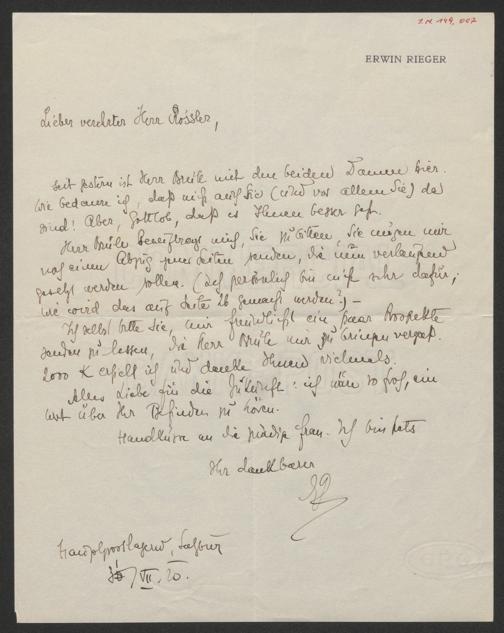 I.N. 149.007
ERWIN RIEGER
Lieber verehrter Herr Rössler,
seit gestern ist Herr Brüle mit den beiden Damen hier.
Wie bedaure ich, daß nicht auch Sie (und vor allem Sie) da
sind! Aber, Gottlob, daß es Ihnen besser geht.
Herr Brüle beauftragt mich, Sie zu bitten, Sie mögen mir
noch einen Abzug jener Seiten senden, die nun verlaufend
gesetzt werden sollen. (Ich persönlich bin nicht sehr dafür;
wie wird das auf Seite 26 gemacht werden?) –
Ich selbst bitte Sie, mir freundlichst ein paar Prospekte
senden zu lassen, die Herr Brüle mir zu bringen vergaß.
2000 K erhielt ich und danke Ihnen vielmals.
Alles Liebe für die Zukunft: ich wäre so froh, ein
Wort über Ihr Befinden zu hören.
Handküsse an die gnädige Frau. Ich bin stets
Ihr dankbarer
Hauptpostlagernd, Salzburg
VII. 20.